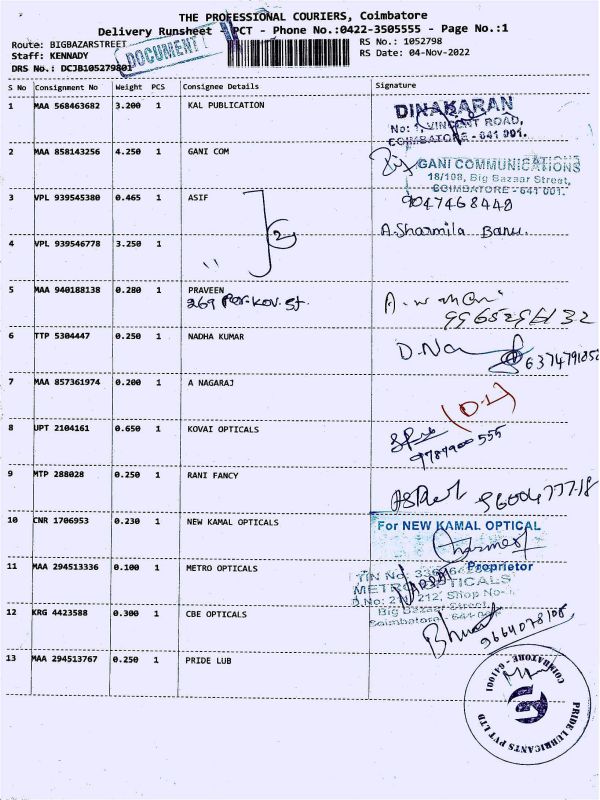 THE PROFESSIONAL COURIERS, Coimbatore
Delivery Runsheet - PCT - Phone No.:0422-3505555 - Page No.:1
Route: BIGBAZARSTREET RS No.: 1052798
Staff: KENNADY DOCUMENT RS Date: 04-Nov-2022
DRS No.: DCJB105279801
S No Consignment No Weight PCS Consignee Details Signature
1 MAA 568463682 3.200 1 KAL PUBLICATION
DINAKARAN
No: 1, VINCENT ROAD,
COIMBATORE - 641 001.
2 MAA 858143256 4.250 1 GANI COM
GANI COMMUNICATIONS
18/108, Big Bazaar Street,
COIMBATORE - 641 001.
3 VPL 939545380 0.465 1 ASIF 9047468448
2 A.Sharmila Banu.
4 VPL 939546778 3.250 1 "
5 MAA 940188138 0.280 1 PRAVEEN
269 Per.kov.st.
6 TTP 5304447 0.250 1 NADHA KUMAR
7 MAA 857361974 0.200 1 A NAGARAJ (D-L)
8 UPT 2104161 0.650 1 KOVAI OPTICALS
9787900555
9 MTP 288028 0.250 1 RANI FANCY
10 CNR 1706953 0.230 1 NEW KAMAL OPTICALS For NEW KAMAL OPTICAL
Proprietor
11 MAA 294513336 0.100 1 METRO OPTICALS
TIN No:
METRO OPTICALS
D.No: 212, Shop No-
Big Bazaar Street,
Coimbatore - 641
12 KRG 4423588 0.300 1 CBE OPTICALS 9664078108
13 MAA 294513767 0.250 1 PRIDE LUB
PRIDE LUBRICANTS PVT LTD
COIMBATORE - 641001